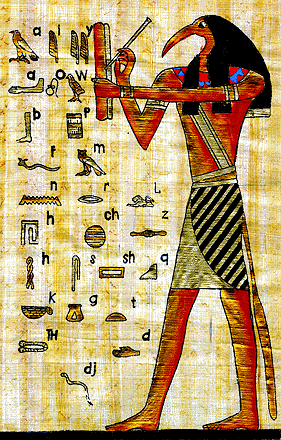 a i y
a o w
b P
f m
n r L
h ch z
h s sh q
K g t
TH d
dj